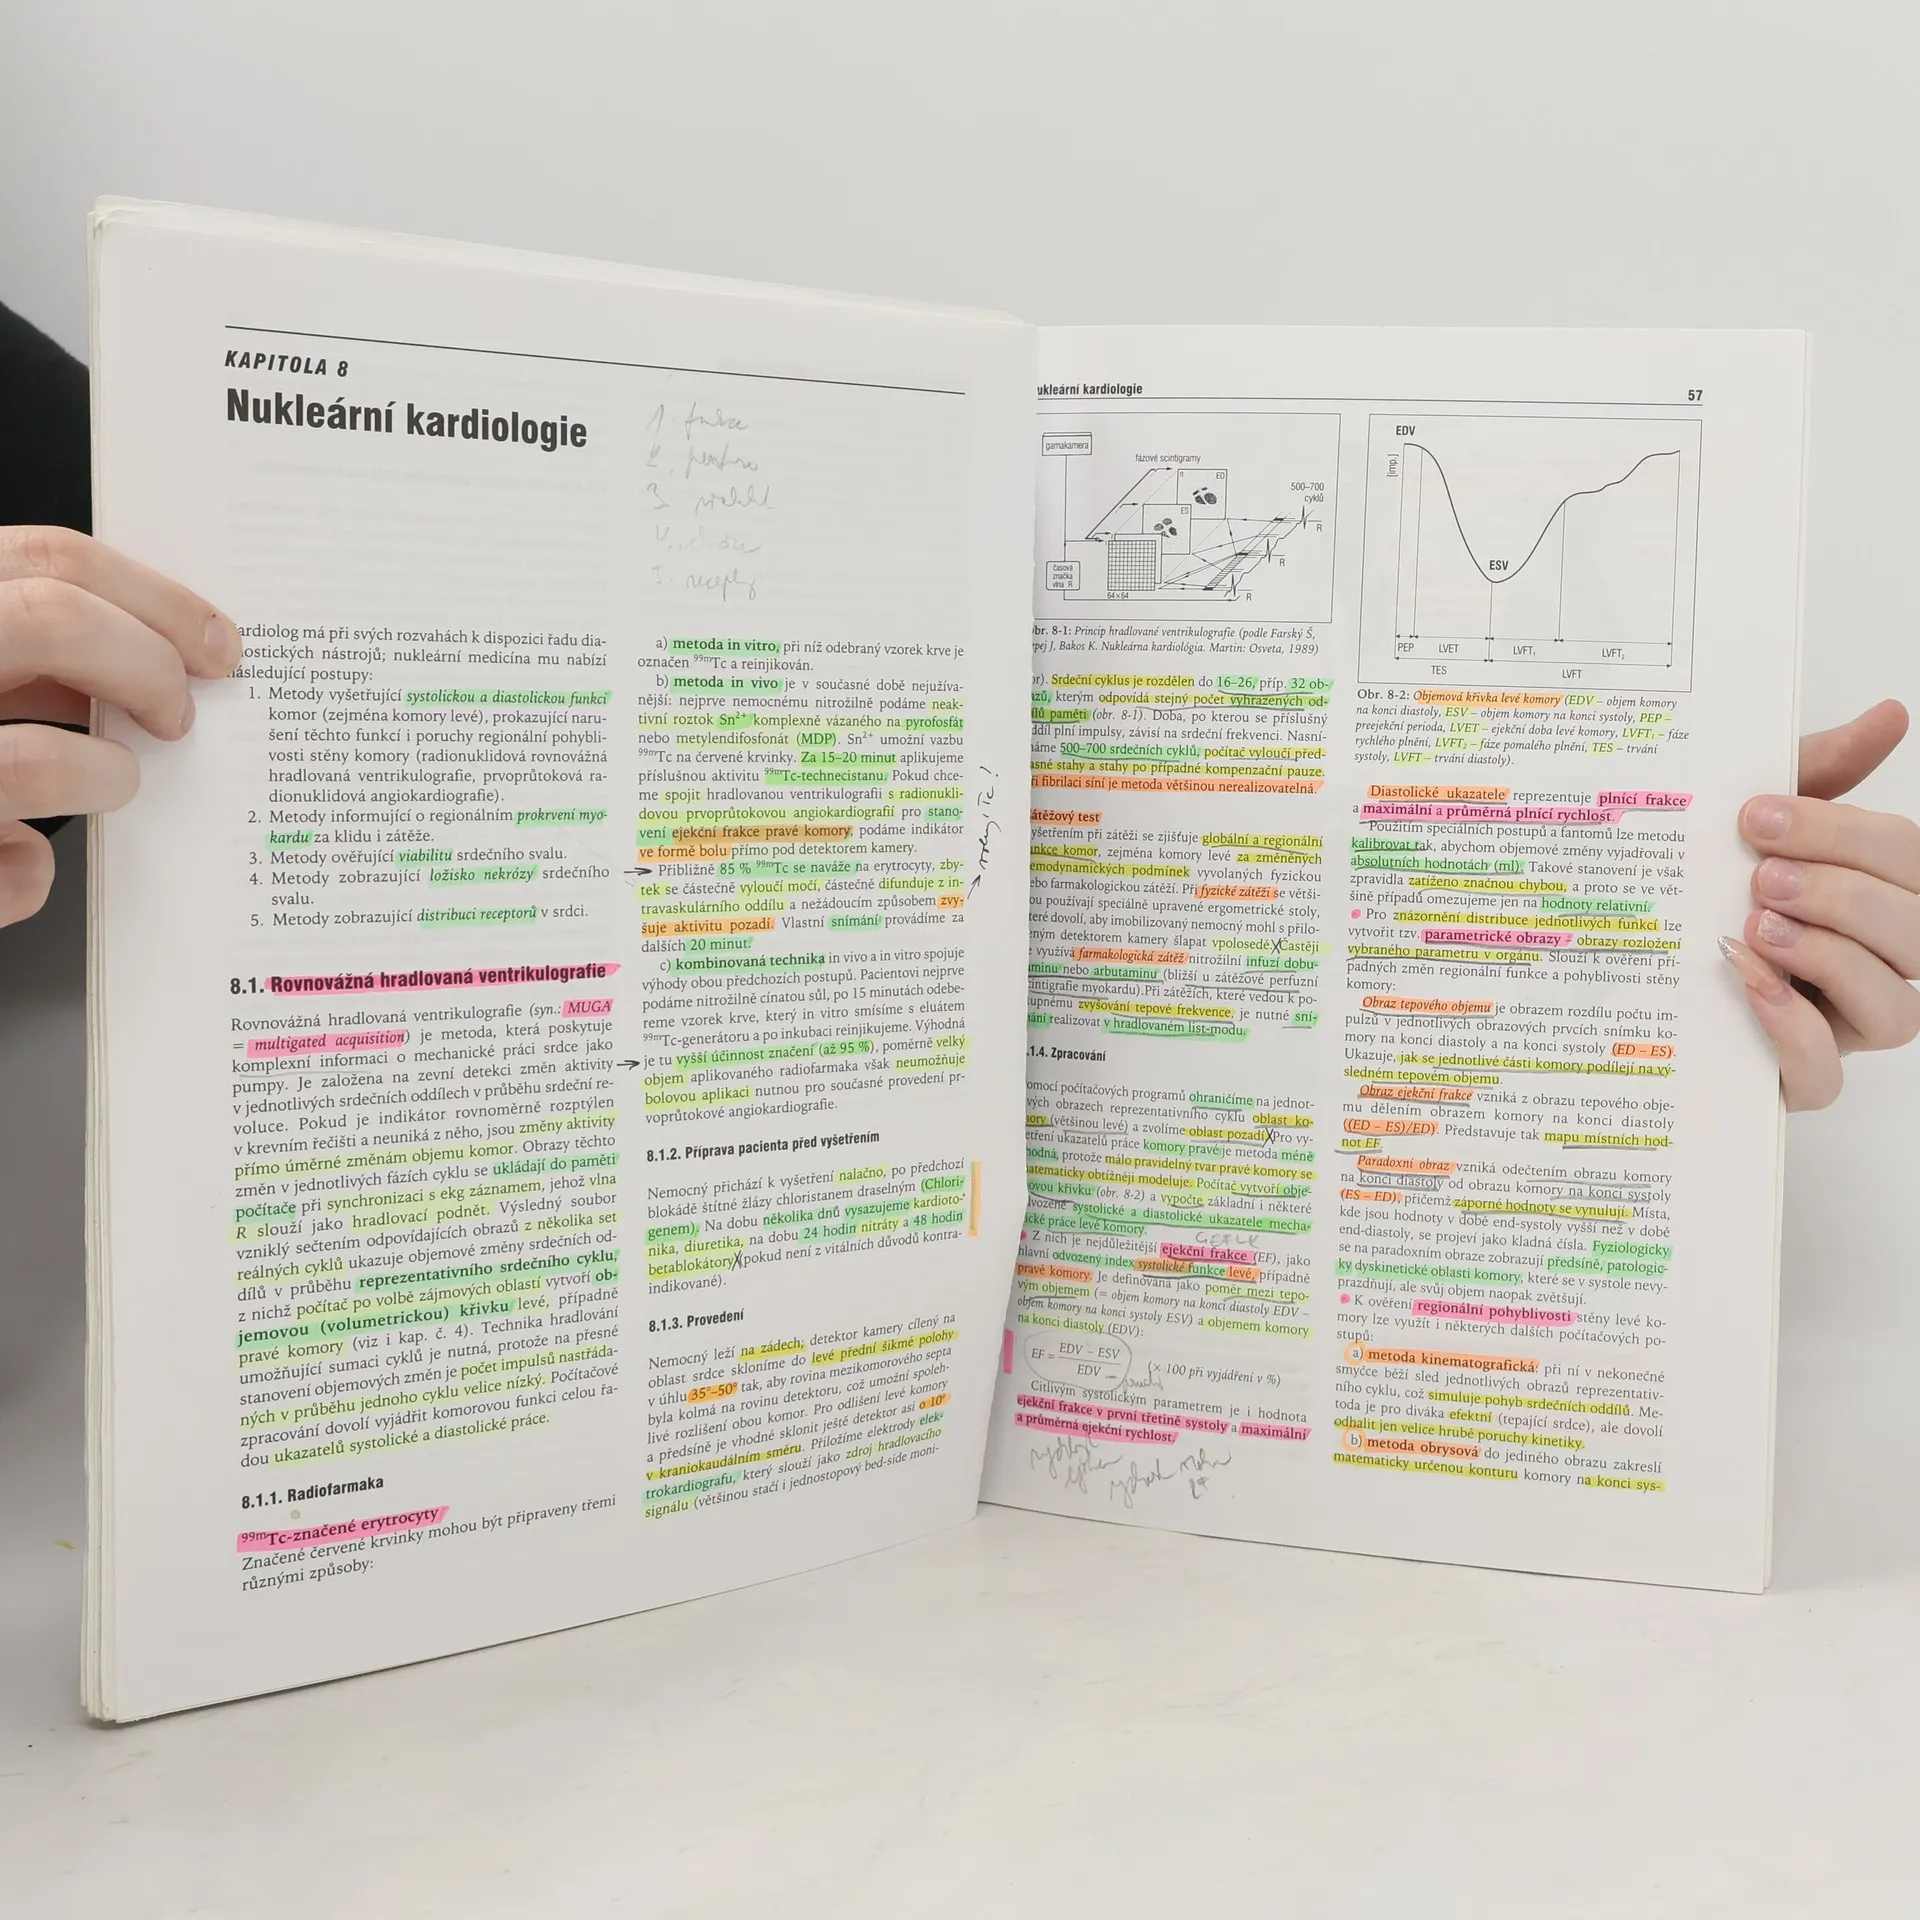 KAPITOLA 8
Nukleární kardiologie
ardiolog má při svých rozvahách k dispozici řadu dia-
nostických nástrojů; nukleární medicína mu nabízí
následující postupy:
1. Metody vyšetřující systolickou a diastolickou funkci
komor (zejména komory levé), prokazující naru-
šení těchto funkcí i poruchy regionální pohybli-
vosti stěny komory (radionuklidová rovnovážná
hradlovaná ventrikulografie, prvoprůtoková ra-
dionuklidová angiokardiografie).
2. Metody informující o regionálním prokrvení myo-
kardu za klidu i zátěže.
3. Metody ověřující viabilitu srdečního svalu.
4. Metody zobrazující ložisko nekrózy srdečního
svalu.
5. Metody zobrazující distribuci receptorů v srdci.
8.1. Rovnovážná hradlovaná ventrikulografie
Rovnovážná hradlovaná ventrikulografie (syn.: MUGA
= multigated acquisition) je metoda, která poskytuje
komplexní informaci o mechanické práci srdce jako
pumpy. Je založena na zevní detekci změn aktivity
v jednotlivých srdečních oddílech v průběhu srdeční re-
voluce. Pokud je indikátor rovnoměrně rozptýlen
v krevním řečišti a neuniká z něho, jsou změny aktivity
přímo úměrné změnám objemu komor. Obrazy těchto
změn v jednotlivých fázích cyklu se ukládají do paměti
počítače při synchronizaci s ekg záznamem, jehož vlna
R slouží jako hradlovací podnět. Výsledný soubor
vzniklý sečtením odpovídajících obrazů z několika set
reálných cyklů ukazuje objemové změny srdečních od-
dílů v průběhu reprezentativního srdečního cyklu,
z nichž počítač po volbě zájmových oblastí vytvoří ob-
jemovou (volumetrickou) křivku levé, případně
pravé komory (viz i kap. č. 4). Technika hradlování
umožňující sumaci cyklů je nutná, protože na přesné
stanovení objemových změn je počet impulsů nastřáda-
ných v průběhu jednoho cyklu velice nízký. Počítačové
zpracování dovolí vyjádřit komorovou funkci celou řa-
dou ukazatelů systolické a diastolické práce.
8.1.1. Radiofarmaka
99mTc-značené erytrocyty
Značené červené krvinky mohou být připraveny třemi
různými způsoby:
a) metoda in vitro, při níž odebraný vzorek krve je
označen 99mTc a reinjikován.
b) metoda in vivo je v současné době nejužíva-
nější: nejprve nemocnému nitrožilně podáme neak-
tivní roztok Sn2+ komplexně vázaného na pyrofosfát
nebo metylendifosfonát (MDP). Sn2+ umožní vazbu
99mTc na červené krvinky. Za 15–20 minut aplikujeme
příslušnou aktivitu 99mTc-technecistanu. Pokud chce-
me spojit hradlovanou ventrikulografii s radionukli-
dovou prvoprůtokovou angiokardiografií pro stano-
vení ejekční frakce pravé komory, podáme indikátor
ve formě bolu přímo pod detektorem kamery.
Přibližně 85 % 99mTc se naváže na erytrocyty, zby-
tek se částečně vyloučí močí, částečně difunduje z in-
travaskulárního oddílu a nežádoucím způsobem zvy-
šuje aktivitu pozadí. Vlastní snímání provádíme za
dalších 20 minut.
c) kombinovaná technika in vivo a in vitro spojuje
výhody obou předchozích postupů. Pacientovi nejprve
podáme nitrožilně cínatou sůl, po 15 minutách odebe-
reme vzorek krve, který in vitro smísíme s eluátem
99mTc-generátoru a po inkubaci reinjikujeme. Výhodná
je tu vyšší účinnost značení (až 95 %), poměrně velký
objem aplikovaného radiofarmaka však neumožňuje
bolovou aplikaci nutnou pro současné provedení pr-
voprůtokové angiokardiografie.
8.1.2. Příprava pacienta před vyšetřením
Nemocný přichází k vyšetření nalačno, po předchozí
blokádě štítné žlázy chloristanem draselným (Chlori-
genem). Na dobu několika dnů vysazujeme kardioto-
nika, diuretika, na dobu 24 hodin nitráty a 48 hodin
betablokátory (pokud není z vitálních důvodů kontra-
indikované).
8.1.3. Provedení
Nemocný leží na zádech; detektor kamery cílený na
oblast srdce skloníme do levé přední šikmé polohy
v úhlu 35°–50° tak, aby rovina mezikomorového septa
byla kolmá na rovinu detektoru, což umožní spoleh-
livé rozlišení obou komor. Pro odlišení levé komory
a předsíně je vhodné sklonit ještě detektor asi o 10°
v kraniokaudálním směru. Přiložíme elektrody elek-
trokardiografu, který slouží jako zdroj hradlovacího
signálu (většinou stačí i jednostopový bed-side moni-
ukleární kardiologie
57
gamakamera
fázové scintigramy
n
ED
ES
500–700
cyklů
R
R
R
časová
značka
vlna R
64×64
br. 8-1: Princip hradlované ventrikulografie (podle Farský Š,
pej J, Bakos K. Nukleárna kardiológia. Martin: Osveta, 1989)
or). Srdeční cyklus je rozdělen do 16–26, příp. 32 ob-
azů, kterým odpovídá stejný počet vyhrazených od-
ílů paměti (obr. 8-1). Doba, po kterou se příslušný
ddíl plní impulsy, závisí na srdeční frekvenci. Nasní-
áme 500–700 srdečních cyklů, počítač vyloučí před-
asné stahy a stahy po případné kompenzační pauze.
ři fibrilaci síní je metoda většinou nerealizovatelná.
átěžový test
yšetřením při zátěži se zjišťuje globální a regionální
unkce komor, zejména komory levé za změněných
emodynamických podmínek vyvolaných fyzickou
ebo farmakologickou zátěží. Při fyzické zátěži se větši-
ou používají speciálně upravené ergometrické stoly,
teré dovolí, aby imobilizovaný nemocný mohl s přilo-
eným detektorem kamery šlapat vpolosedě. Častěji
e využívá farmakologická zátěž nitrožilní infuzí dobu-
aminu nebo arbutaminu (bližší u zátěžové perfuzní
cintigrafie myokardu). Při zátěžích, které vedou k po-
tupnému zvyšování tepové frekvence, je nutné sní-
ání realizovat v hradlovaném list-modu.
.1.4. Zpracování
omocí počítačových programů ohraničíme na jednot-
vých obrazech reprezentativního cyklu oblast ko-
ory (většinou levé) a zvolíme oblast pozadí. Pro vy-
etření ukazatelů práce komory pravé je metoda méně
hodná, protože málo pravidelný tvar pravé komory se
atematicky obtížněji modeluje. Počítač vytvoří obje-
ovou křivku (obr. 8-2) a vypočte základní i některé
dvozené systolické a diastolické ukazatele mecha-
ické práce levé komory.
Z nich je nejdůležitější ejekční frakce (EF), jako
hlavní odvozený index systolické funkce levé, případně
pravé komory. Je definována jako poměr mezi tepo-
vým objemem (= objem komory na konci diastoly EDV –
objem komory na konci systoly ESV) a objemem komory
na konci diastoly (EDV):
EF = EDV – ESV / EDV (× 100 při vyjádření v %)
Citlivým systolickým parametrem je i hodnota
ejekční frakce v první třetině systoly a maximální
a průměrná ejekční rychlost.
EDV
[imp.]
ESV
PEP LVET LVFT1 LVFT2
TES LVFT
Obr. 8-2: Objemová křivka levé komory (EDV – objem komory
na konci diastoly, ESV – objem komory na konci systoly, PEP –
preejekční perioda, LVET – ejekční doba levé komory, LVFT1 – fáze
rychlého plnění, LVFT2 – fáze pomalého plnění, TES – trvání
systoly, LVFT – trvání diastoly).
Diastolické ukazatele reprezentuje plnící frakce
a maximální a průměrná plnící rychlost.
Použitím speciálních postupů a fantomů lze metodu
kalibrovat tak, abychom objemové změny vyjadřovali v
absolutních hodnotách (ml). Takové stanovení je však
zpravidla zatíženo značnou chybou, a proto se ve vět-
šině případů omezujeme jen na hodnoty relativní.
Pro znázornění distribuce jednotlivých funkcí lze
vytvořit tzv. parametrické obrazy – obrazy rozložení
vybraného parametru v orgánu. Slouží k ověření pří-
padných změn regionální funkce a pohyblivosti stěny
komory:
Obraz tepového objemu je obrazem rozdílu počtu im-
pulzů v jednotlivých obrazových prvcích snímku ko-
mory na konci diastoly a na konci systoly (ED – ES).
Ukazuje, jak se jednotlivé části komory podílejí na vý-
sledném tepovém objemu.
Obraz ejekční frakce vzniká z obrazu tepového obje-
mu dělením obrazem komory na konci diastoly
((ED – ES)/ED). Představuje tak mapu místních hod-
not EF.
Paradoxní obraz vzniká odečtením obrazu komory
na konci diastoly od obrazu komory na konci systoly
(ES – ED), přičemž záporné hodnoty se vynulují. Místa,
kde jsou hodnoty v době end-systoly vyšší než v době
end-diastoly, se projeví jako kladná čísla. Fyziologicky
se na paradoxním obraze zobrazují předsíně, patologic-
ky dyskinetické oblasti komory, které se v systole nevy-
prazdňují, ale svůj objem naopak zvětšují.
K ověření regionální pohyblivosti stěny levé ko-
mory lze využít i některých dalších počítačových po-
stupů:
a) metoda kinematografická: při ní v nekonečné
smyčce běží sled jednotlivých obrazů reprezentativ-
ního cyklu, což simuluje pohyb srdečních oddílů. Me-
toda je pro diváka efektní (tepající srdce), ale dovolí
odhalit jen velice hrubé poruchy kinetiky.
b) metoda obrysová do jediného obrazu zakreslí
matematicky určenou konturu komory na konci sys-